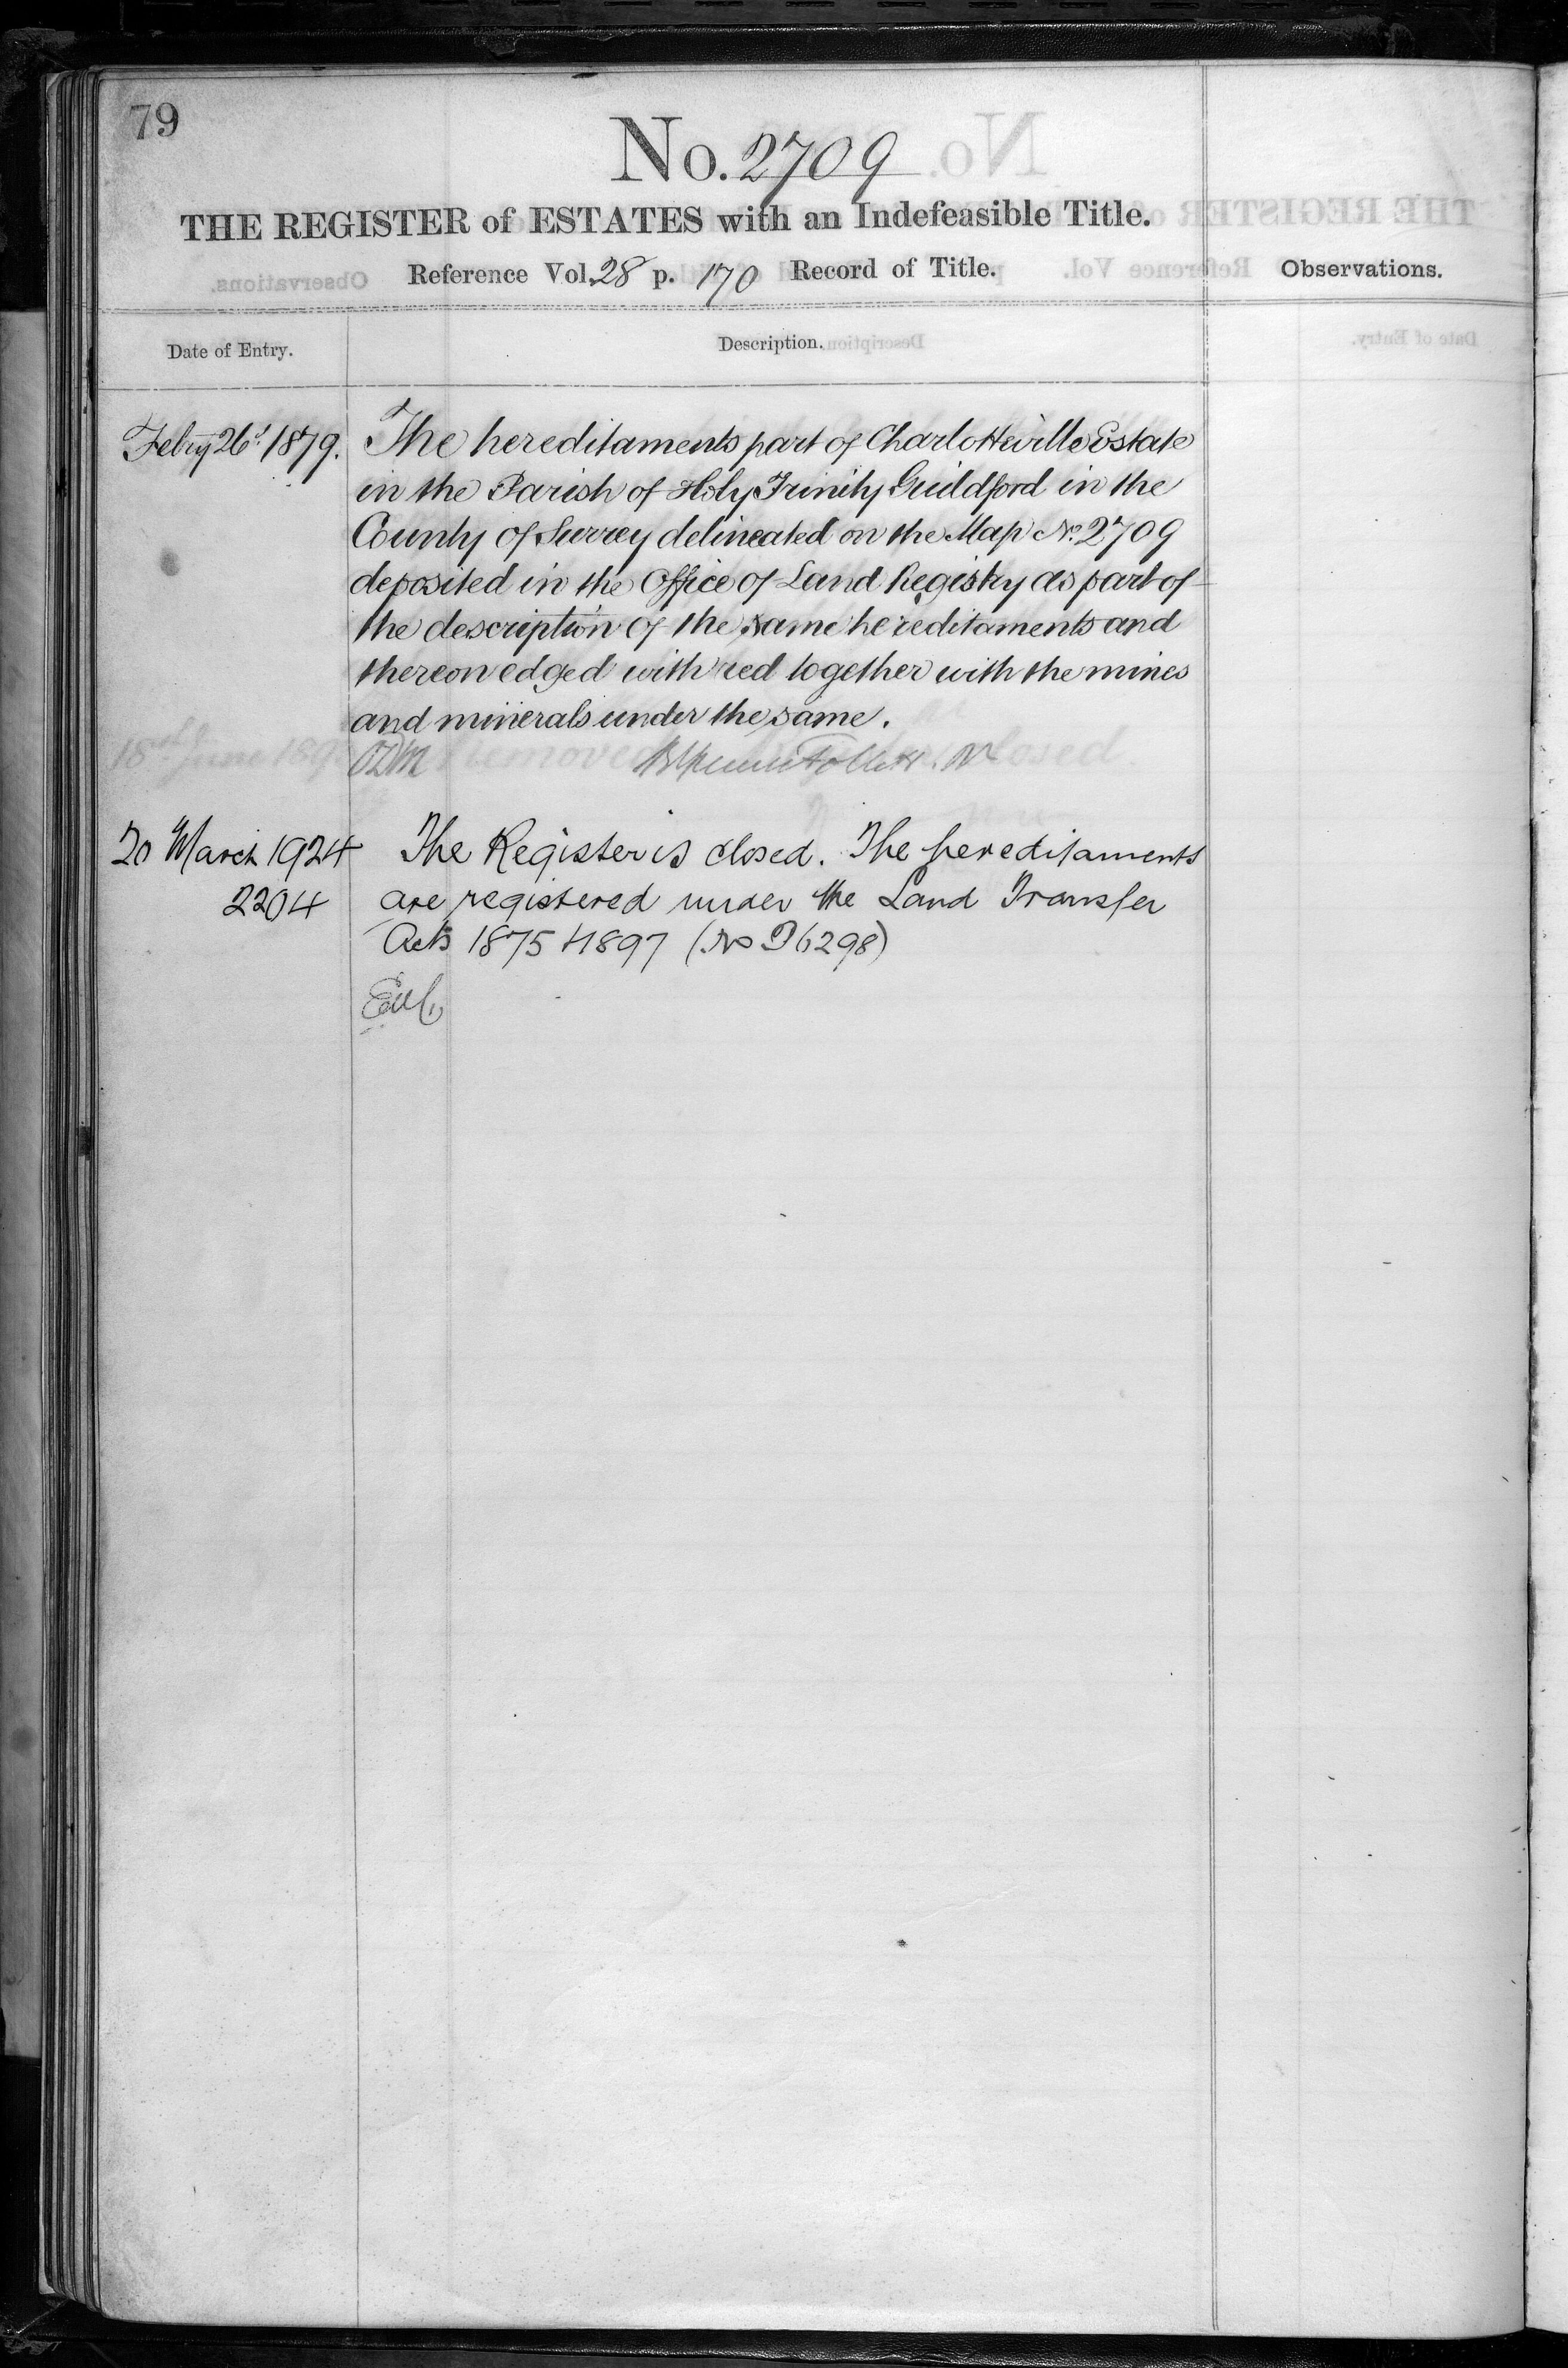 79
No. 2709
THE REGISTER of ESTATES with an Indefeasible Title.
Reference Vol. 28 p. 170 Record of Title.
Observations.
Date of Entry.
Description.
Febry 26th 1879.
The hereditaments part of Charlotteville Estate
in the Parish of Holy Trinity Guildford in the
County of Surrey delineated on the Map No. 2709
deposited in the Office of Land Registry as part of
the description of the same hereditaments and
thereon edged with red together with the mines
and minerals under the same.
Follett
20 March 1924
2204
The Register is closed. The hereditaments
are registered under the Land Transfer
Acts 1875 & 1897 (No P6298)